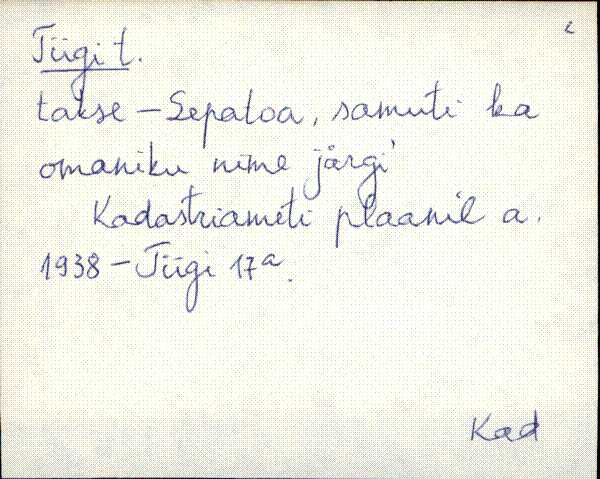 Tiigi t.
takse – Sepatoa, samuti ka
omaniku nime järgi
Kadastriameti plaanil a.
1938 – Tiigi 17a.
Kad